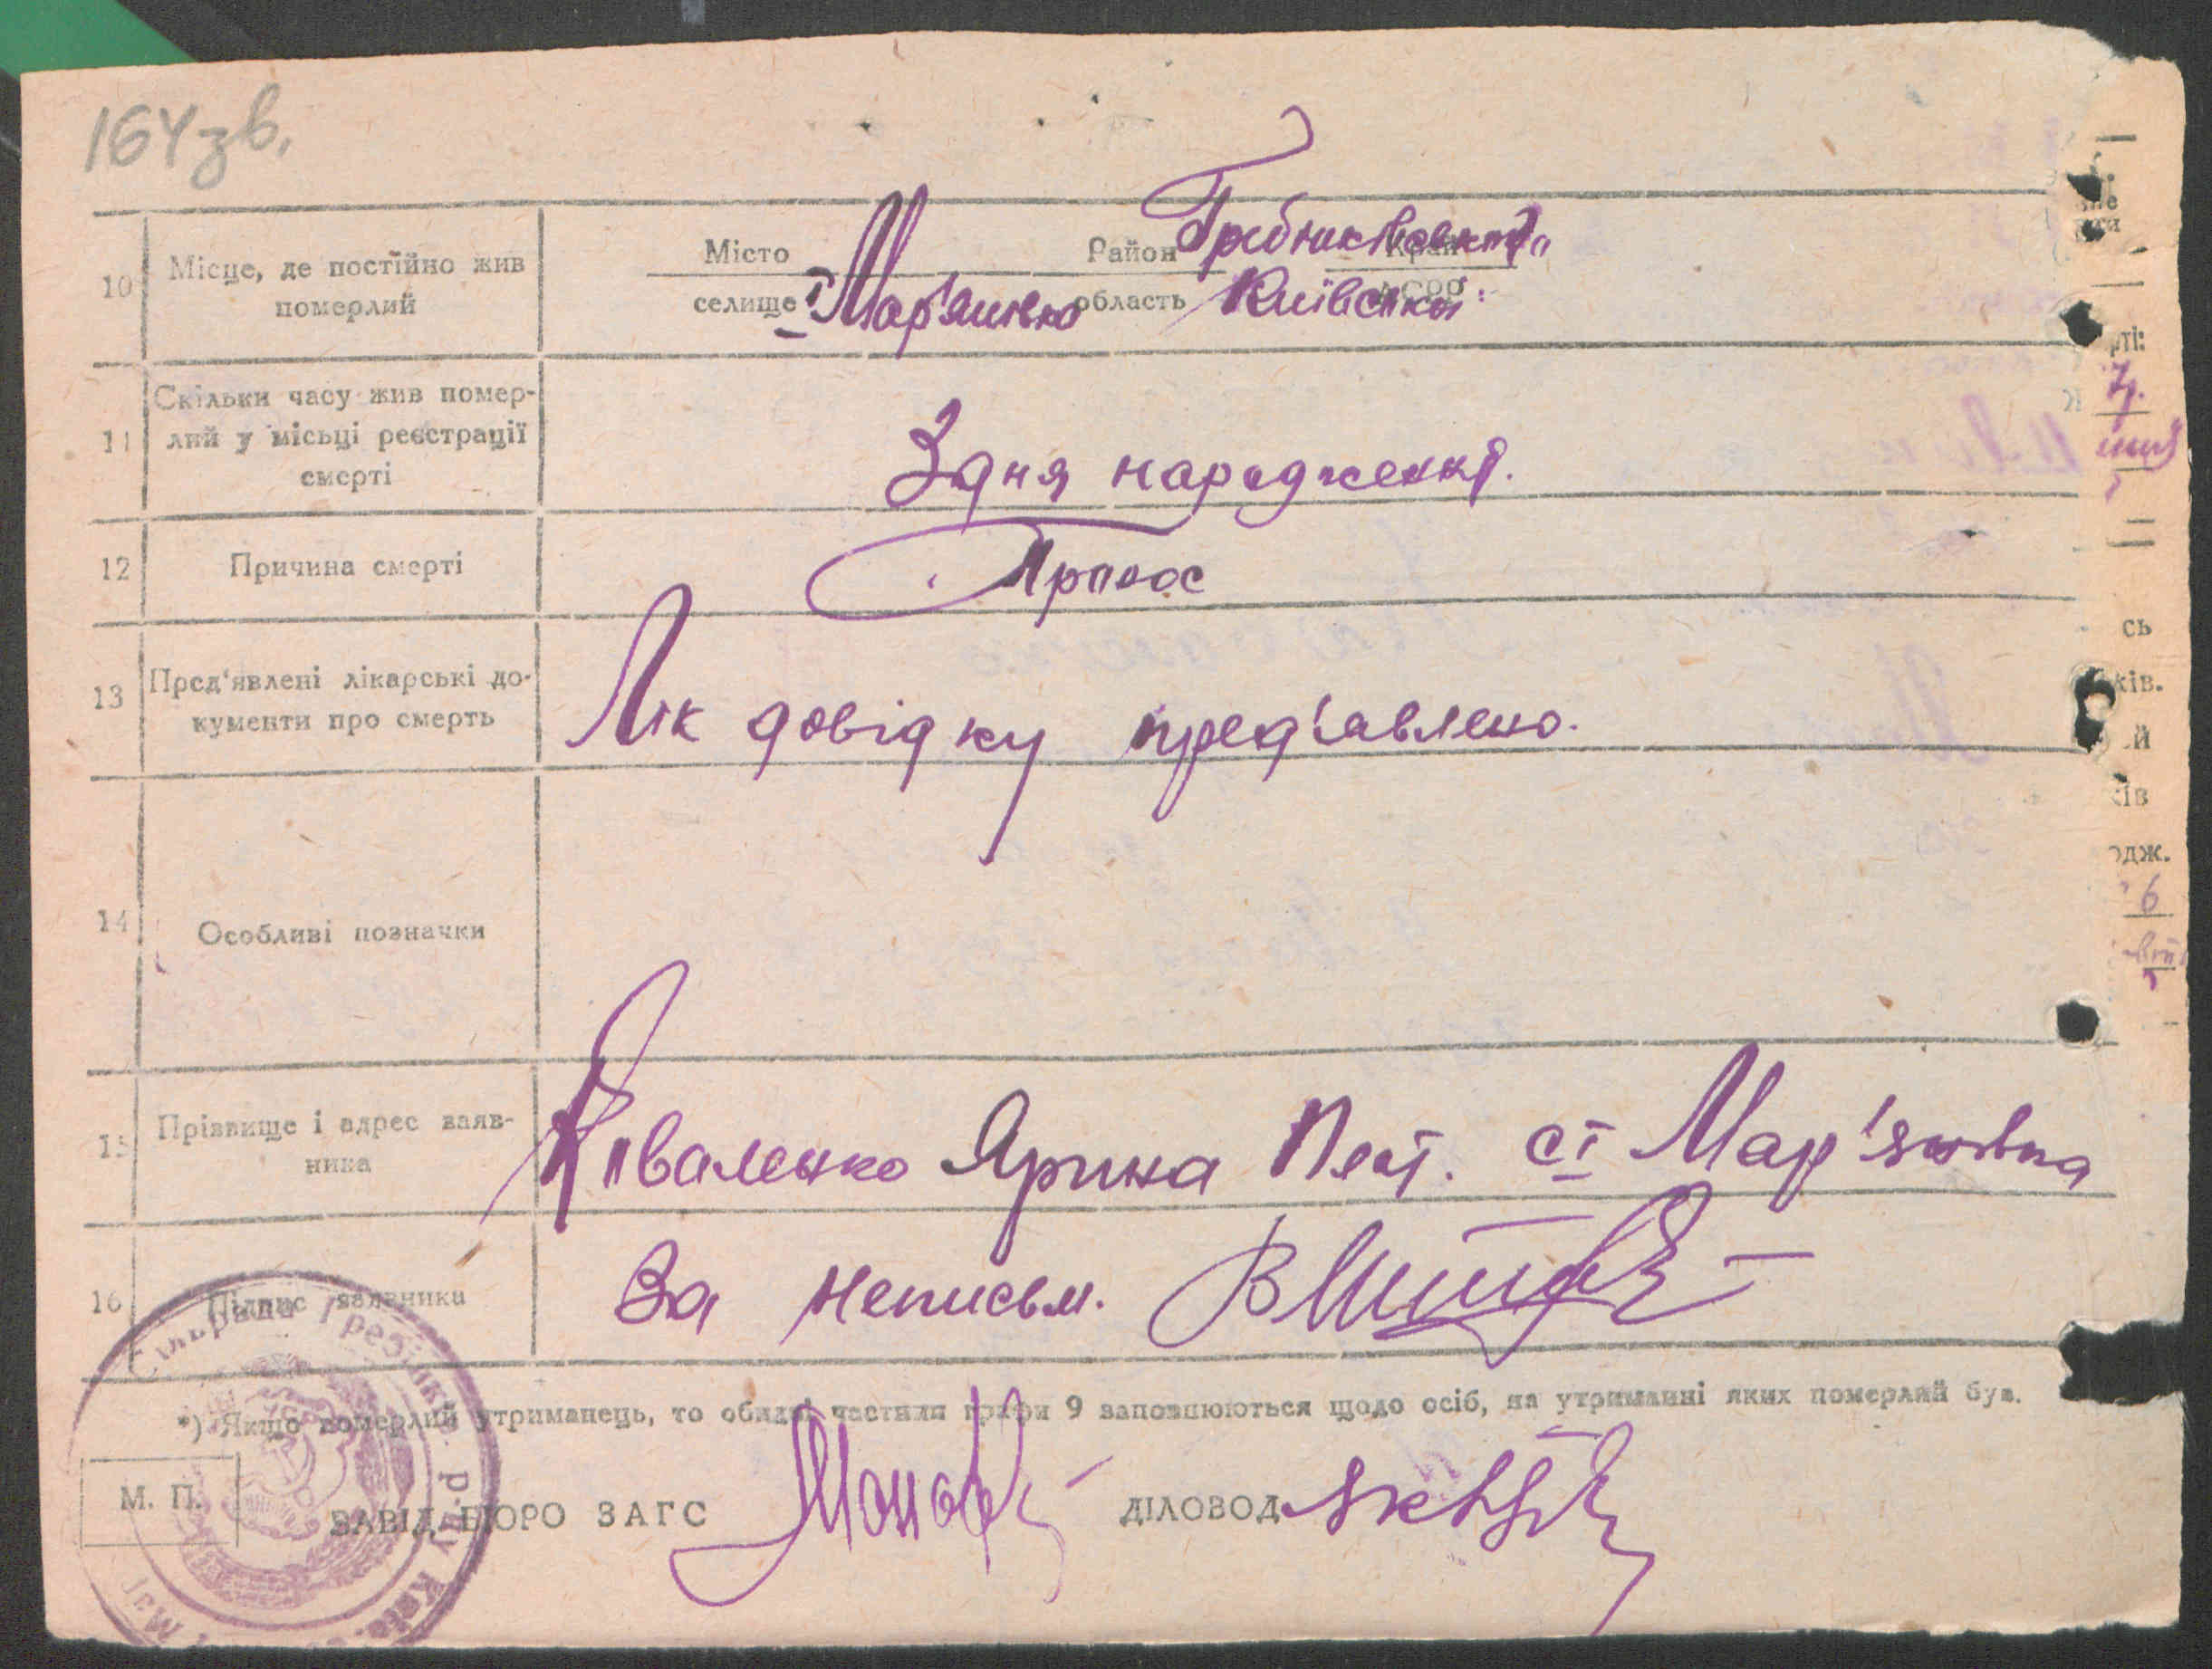 164зв.
10 Місце, де постійно жив померлий
Місто
селище І Мар'янівка
Район Гребінківський
область Київська
Край
АСРР
11 Скільки часу жив помер-
лий у місьці реєстрації
смерті
З дня народження.
12 Причина смерті
13 Пред'явлені лікарські до-
кументи про смерть
Лік довідку пред'явлено.
14 Особливі позначки
15 Прізвище і адрес заяв-
ника
Коваленко Ярина Пет. с І Мар'янівка
16 Підпис заявника
За неписьм.
*) Якщо померлий утриманець, то обидві частини графи 9 заповнюються щодо осіб, на утриманні яких померлий був.
М. П.
ЗАВІД БЮРО ЗАГС
ДІЛОВОД
рті:
сь
ків.
й
ків
одж.
6